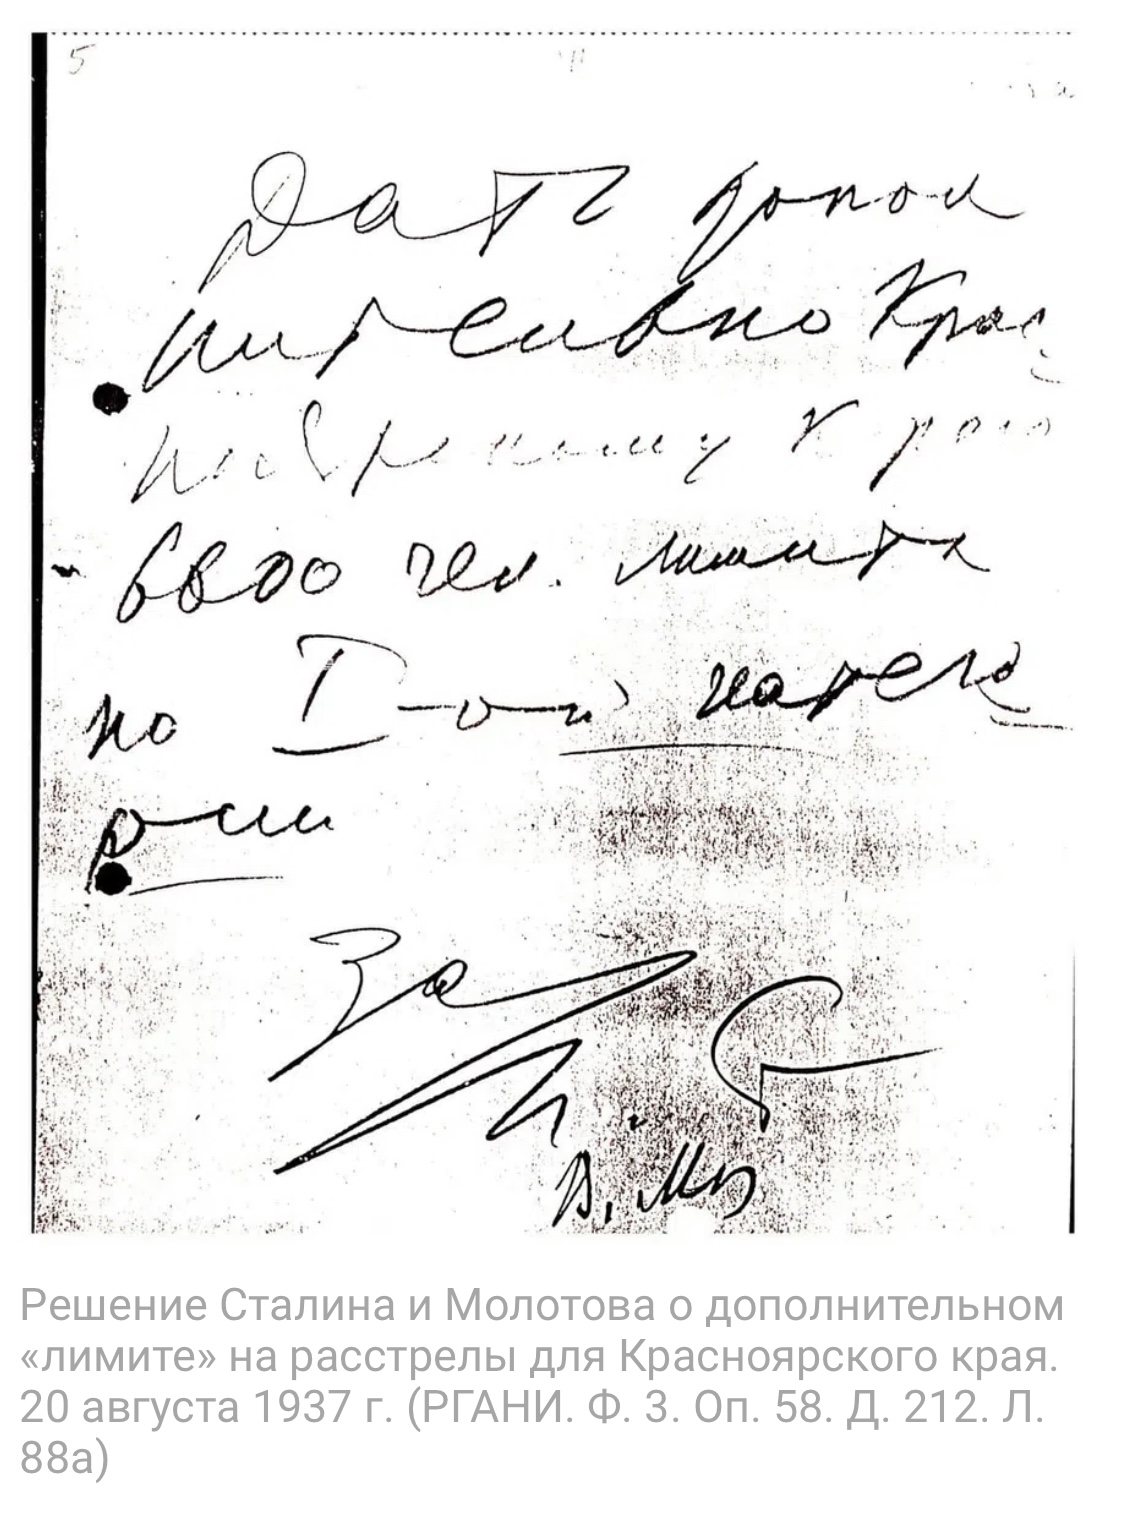 5
Дать допол
нительно Крас
ноярскому краю
6600 чел. лимита
по I-ой катего
рии
За
И. Ст
В. Мол
Решение Сталина и Молотова о дополнительном
«лимите» на расстрелы для Красноярского края.
20 августа 1937 г. (РГАНИ. Ф. 3. Оп. 58. Д. 212. Л.
88а)